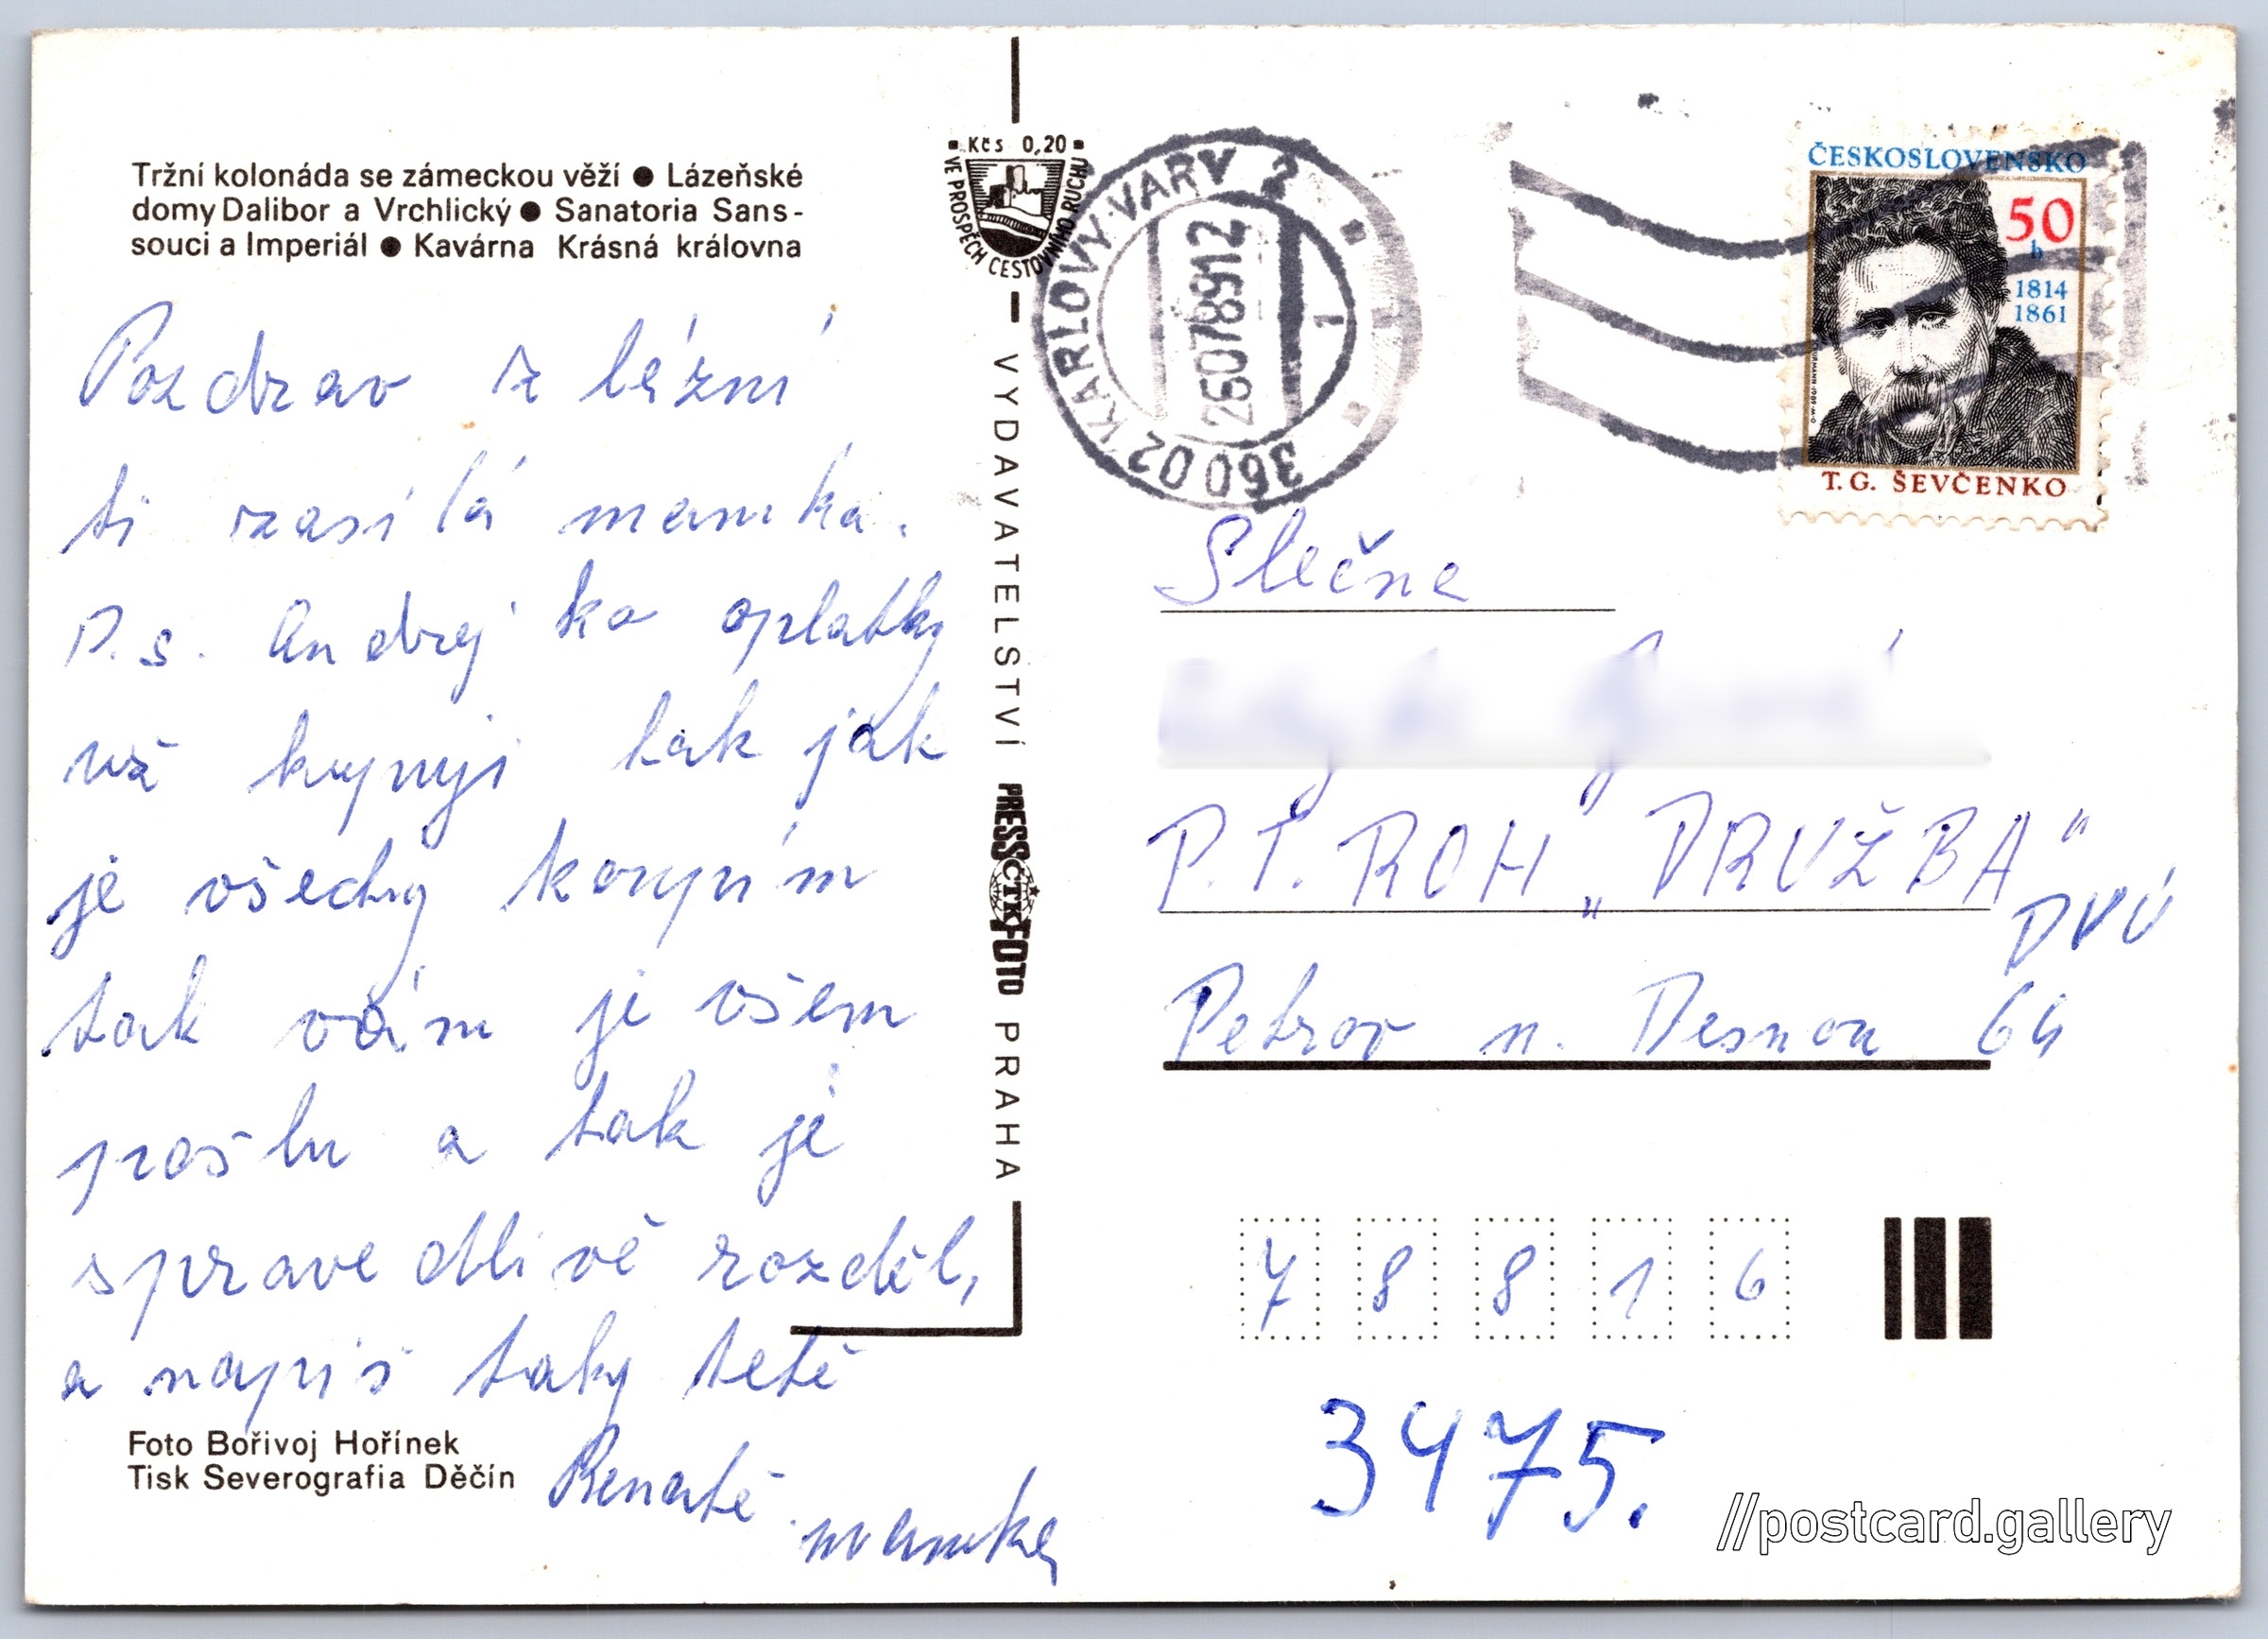 Tržní kolonáda se zámeckou věží ● Lázeňské
domy Dalibor a Vrchlický ● Sanatoria Sans-
souci a Imperiál ● Kavárna Krásná královna
Pozdrav z lázní
ti zasílá mamka.
P.s. Andrejko oplatky
už kupuji tak jak
je všechny koupím
tak vám je všem
pošlu a tak je
spravedlivě rozděl,
a napiš taky tetě
Renatě. mamka
Foto Bořivoj Hořínek
Tisk Severografia Děčín
Kčs 0,20
VE PROSPĚCH CESTOVNÍHO RUCHU
VYDAVATELSTVÍ PRESSFOTO PRAHA
ČTK
360 02 KARLOVY VARY 2
26.07.89.12
1
ČESKOSLOVENSKO
50
h
1814
1861
T. G. ŠEVČENKO
Slečna
P.T. ROH „DRUŽBA"
DVÚ
Petrov n. Desnou 64
7 8 8 1 6
3475.
//postcard.gallery